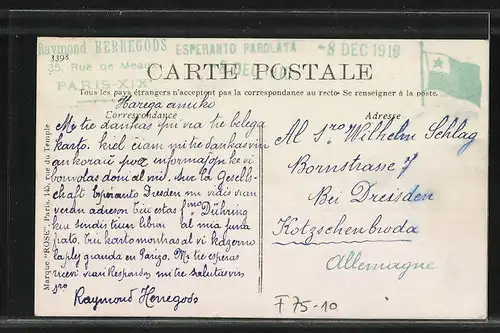 Raymond HERREGODS
35, Rue de Meaux
PARIS-XIX
ESPERANTO PAROLATA
8 DEC 1910
-8 DEC 1910
3398
CARTE POSTALE
Tous les pays étrangers n'acceptent pas la correspondance au recto. Se renseigner à la poste.
Correspondance
Adresse
Marque "ROSE", Paris, 145, rue du Temple
amiko
Mi tre dankas vin pri via tre belega
karto. kiel ĉiam mi tre dankas vin
ankoraŭ por informojn ke vi
bonvolas doni al mi. sur la Gesell-
chaft Esperanto Dresden mi vidis vian
veran adreson
Dühring
kiu sendis tien libraĵ al mia juna
frato. Tiu karto montras al vi
la plej granda en Parizo. Mi tre esperas
ricevi vian Respondon mi tre salutas vin
Raymond Herregods
Al Sro Wilhelm Schlag
Bornstrasse 7
Bei Dresden
Kotzschenbroda
Allemagne
F75-10